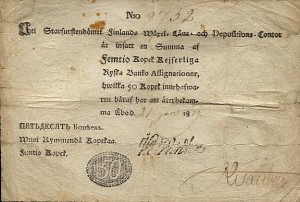 No 3732
Uti Storfurstendömet Finlands Wäxel-, Låne- och Depositions-Contor
är insatt en Summa af
Femtio Kopek Kejserliga
Ryska Banko Assignationer,
hwilka 50 Kopek innehafwaren
häraf har att återbekomma
Åbo d. 18
ПЯТЬДЕСЯТЪ Копѣекъ.
Wiisi Kymmendä Kopekaa.
Femtio Kopek.
50